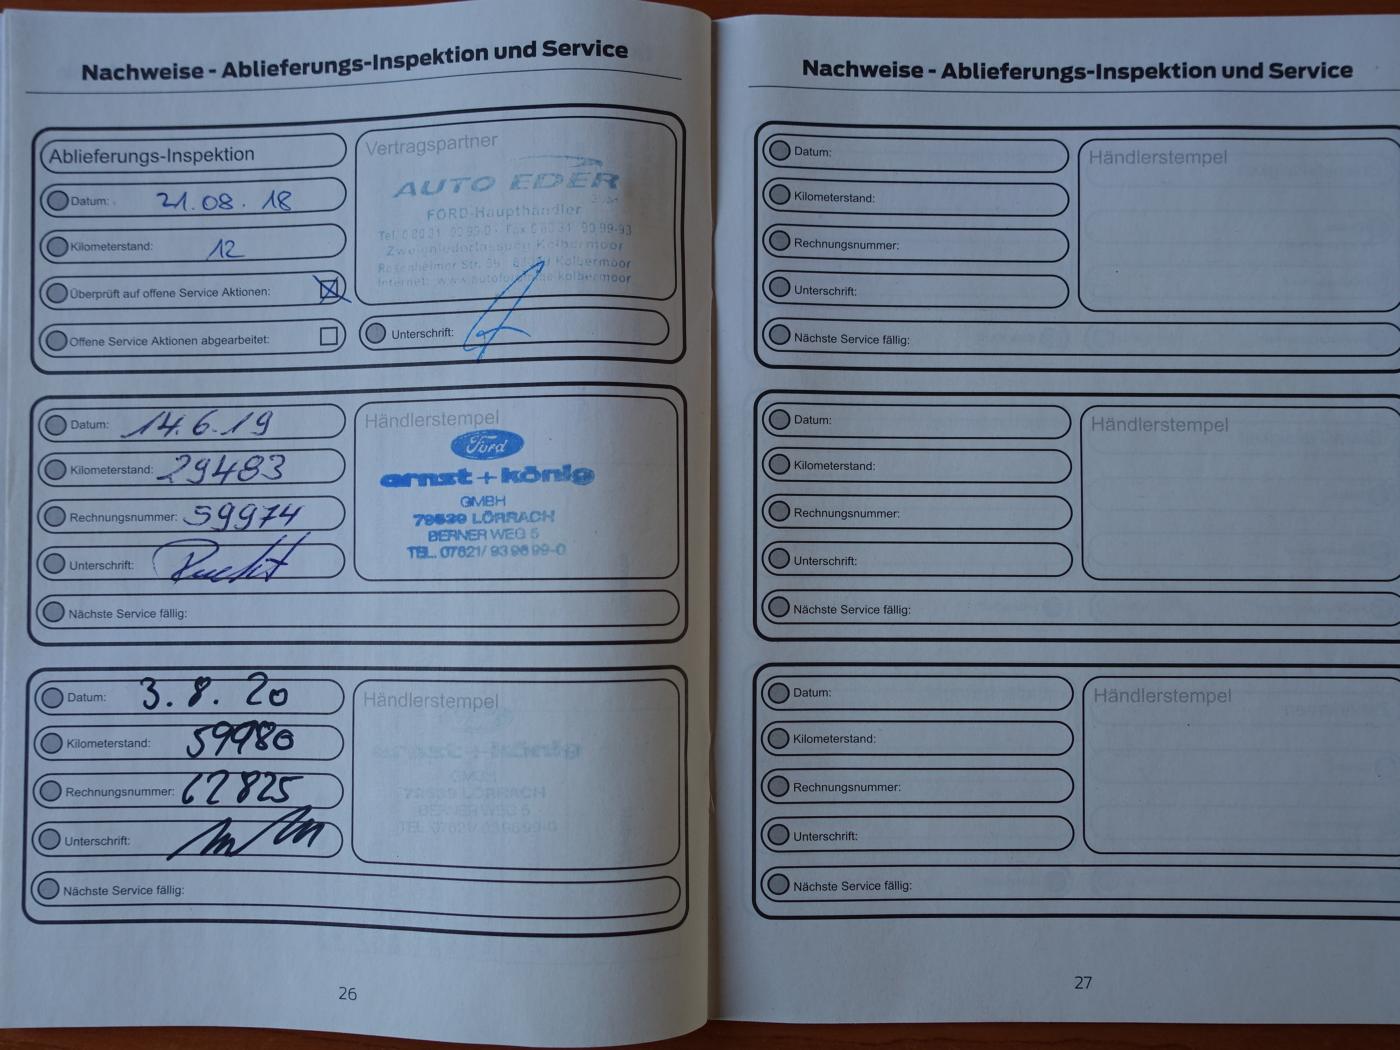 Nachweise - Ablieferungs-Inspektion und Service
Ablieferungs-Inspektion
Datum: 21.08.18
Kilometerstand: 12
Überprüft auf offene Service Aktionen:
Offene Service Aktionen abgearbeitet:
Vertragspartner
AUTO EDER
FORD-Haupthändler
Zweigniederlassung Kolbermoor
Unterschrift:
Datum: 14.6.19
Kilometerstand: 29483
Rechnungsnummer: 59974
Unterschrift:
Händlerstempel
Ford
ernst + könig
GMBH
79539 LÖRRACH
BERNER WEG 5
TEL. 07621/ 93 96 99-0
Nächste Service fällig:
Datum: 3.8.20
Kilometerstand: 59980
Rechnungsnummer: 62825
Unterschrift:
Händlerstempel
ernst + könig
GMBH
79539 LÖRRACH
BERNER WEG 5
TEL. 07621/ 93 96 99-0
Nächste Service fällig:
26
Nachweise - Ablieferungs-Inspektion und Service
Datum:
Kilometerstand:
Rechnungsnummer:
Unterschrift:
Händlerstempel
Nächste Service fällig:
Datum:
Kilometerstand:
Rechnungsnummer:
Unterschrift:
Händlerstempel
Nächste Service fällig:
Datum:
Kilometerstand:
Rechnungsnummer:
Unterschrift:
Händlerstempel
Nächste Service fällig:
27